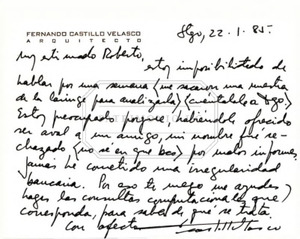 FERNANDO CASTILLO VELASCO
ARQUITECTO
Stgo, 22-1-85.
Muy estimado Roberto,
estoy imposibilitado de
hablar por una semana (me sacaron una muestra
de la laringe para analizarla) (cuéntaselo a
Estoy preocupado porque, habiéndole ofrecido
ser aval a un amigo, mi nombre fué re-
chazado (no sé en que bco) por malos informes
jamás he cometido una irregularidad
bancaria. Por eso te ruego me ayudes y
hagas las consultas computacionales que
corresponda, para saber de qué se trata.
Con afecto